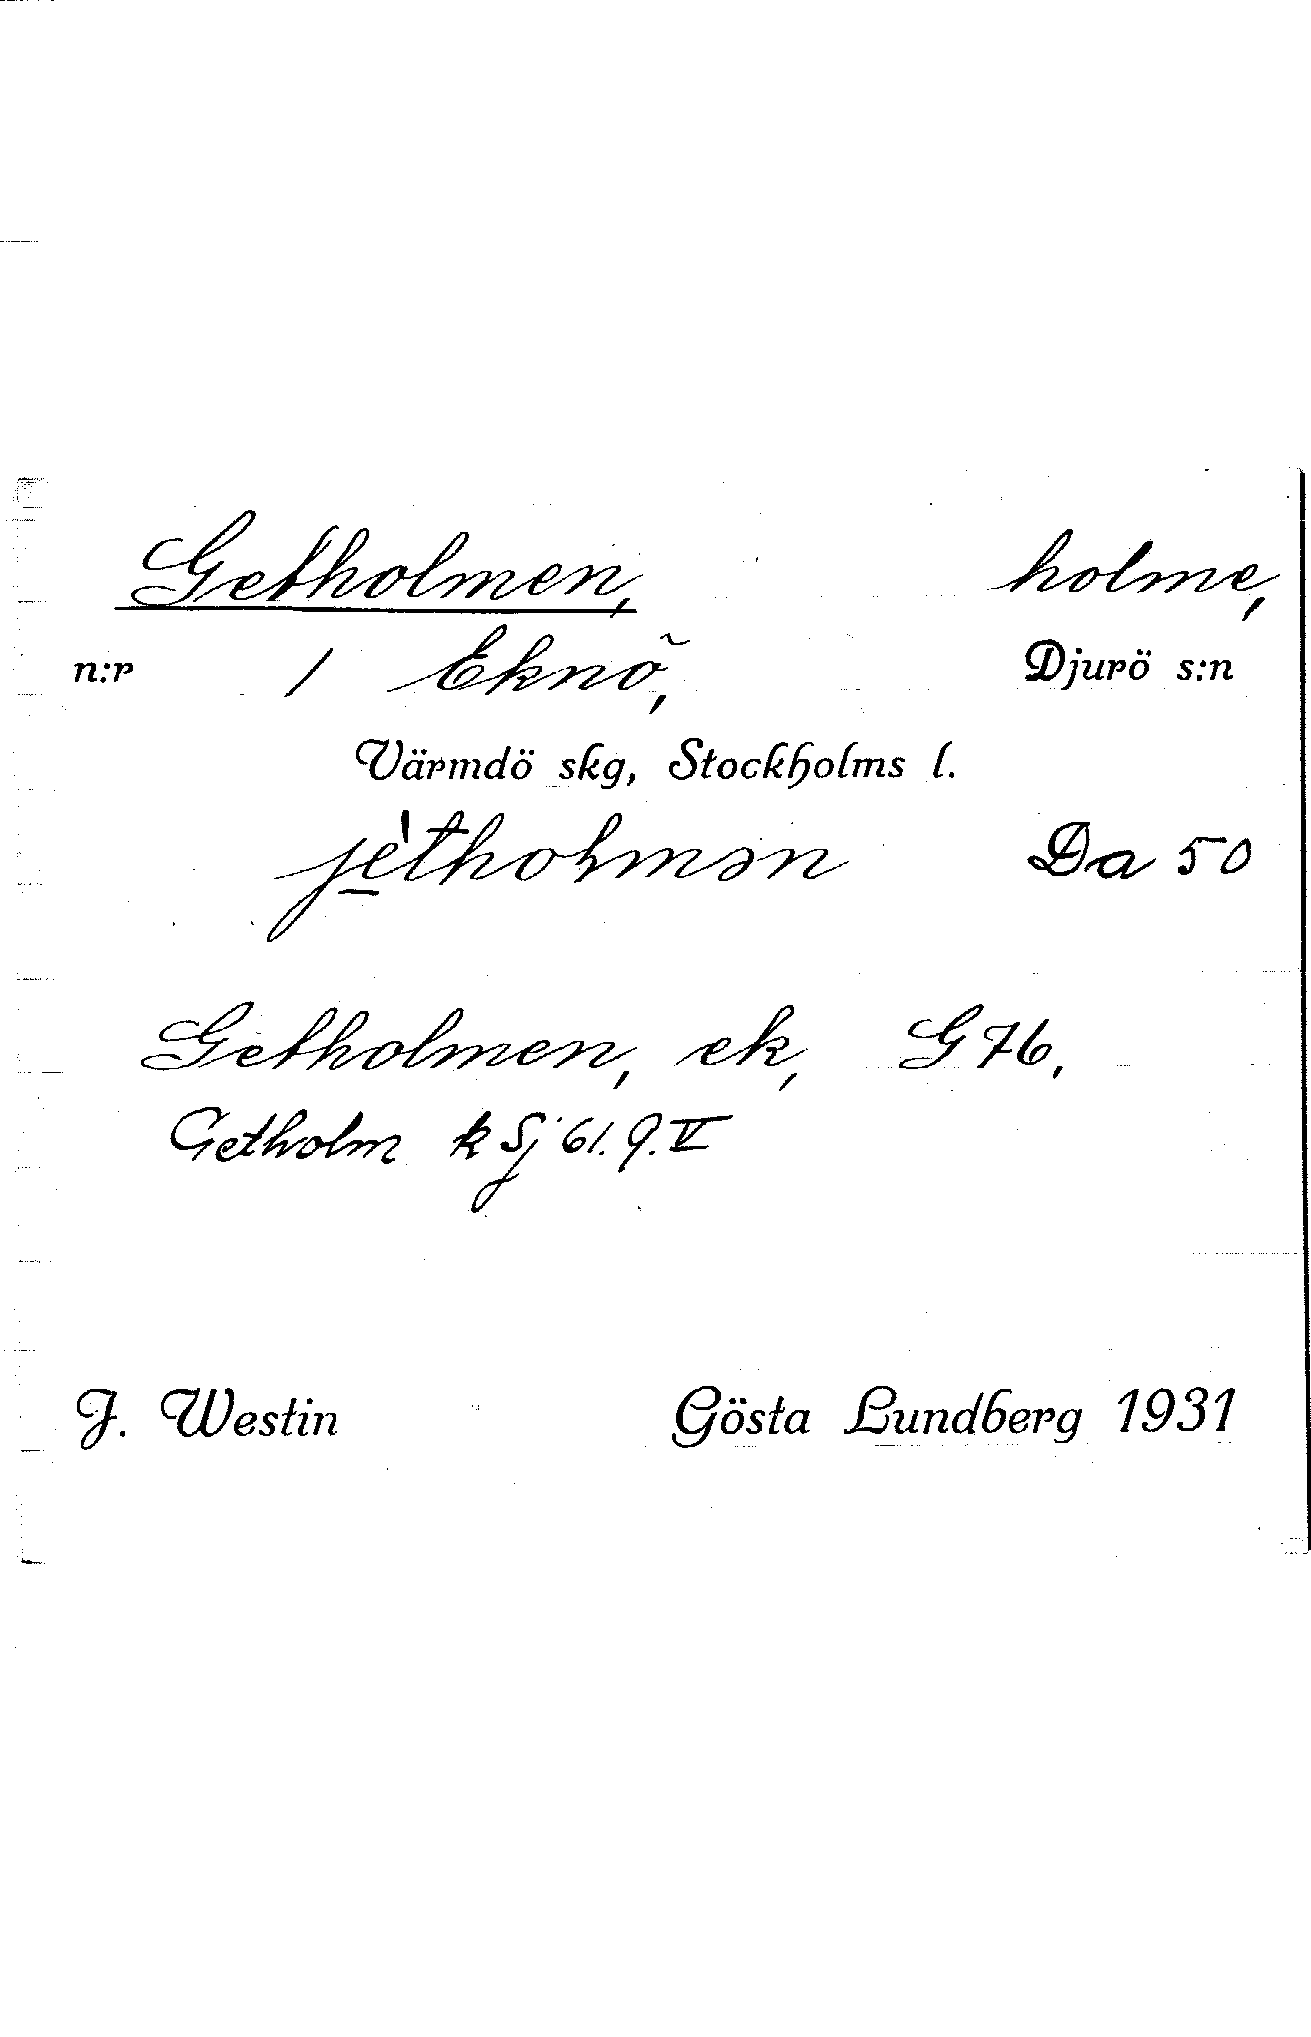 Getholmen, holme,
n:r 1 Eknö, Djurö s:n
Värmdö skg, Stockholms l.
jètholmən Da 50
Getholmen, ek, G 76,
Getholm k Sj 61. 9. V
J. Westin Gösta Lundberg 1931